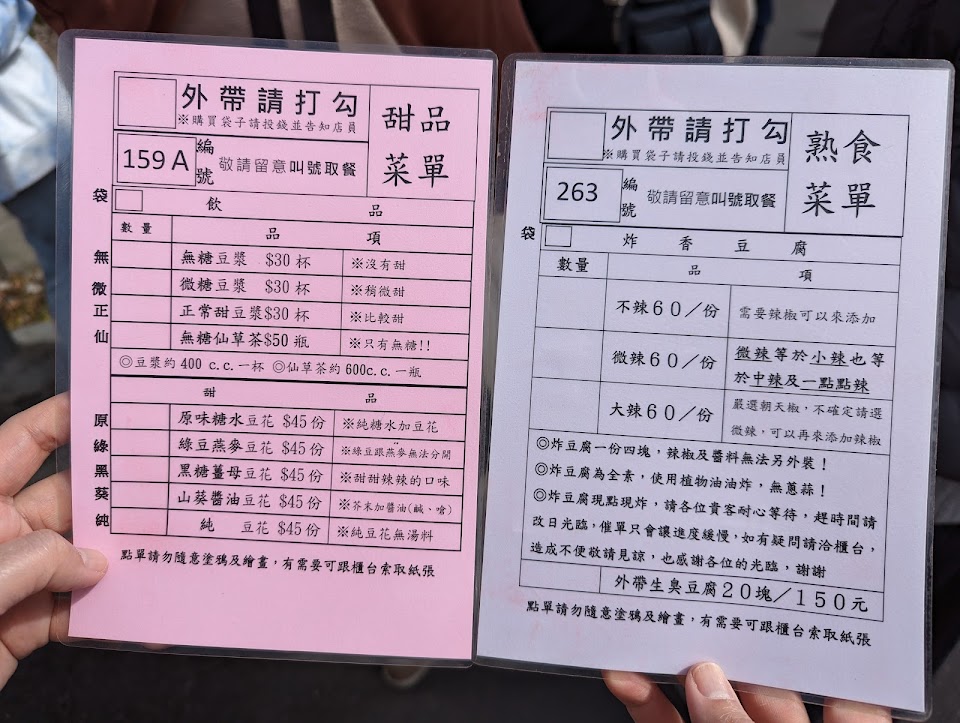 外帶請打勾
※購買袋子請投錢並告知店員
甜品
菜單
159 A
編號
敬請留意叫號取餐
袋
飲 品
數量 品 項
無 無糖豆漿 $30 杯 ※沒有甜
微 微糖豆漿 $30 杯 ※稍微甜
正 正常甜豆漿$30 杯 ※比較甜
仙 無糖仙草茶$50 瓶 ※只有無糖!!
◎豆漿約 400 c.c.一杯 ◎仙草茶約600c.c.一瓶
甜 品
原 原味糖水豆花 $45份 ※純糖水加豆花
綠 綠豆燕麥豆花 $45份 ※綠豆跟燕麥無法分開
黑 黑糖薑母豆花 $45份 ※甜甜辣辣的口味
葵 山葵醬油豆花 $45份 ※芥末加醬油(鹹、嗆)
純 純 豆花 $45份 ※純豆花無湯料
點單請勿隨意塗鴉及繪畫，有需要可跟櫃台索取紙張
外帶請打勾
※購買袋子請投錢並告知店員
熟食
菜單
263
編號
敬請留意叫號取餐
袋
炸 香 豆 腐
數量 品 項
不辣60／份 需要辣椒可以來添加
微辣60／份 微辣等於小辣也等
於中辣及一點點辣
大辣60／份 嚴選朝天椒，不確定請選
微辣，可以再來添加辣椒
◎炸豆腐一份四塊，辣椒及醬料無法另外裝！
◎炸豆腐為全素，使用植物油油炸，無蔥蒜！
◎炸豆腐現點現炸，請各位貴客耐心等待，趕時間請
改日光臨，催單只會讓進度緩慢，如有疑問請洽櫃台，
造成不便敬請見諒，也感謝各位的光臨，謝謝
外帶生臭豆腐20塊／150元
點單請勿隨意塗鴉及繪畫，有需要可跟櫃台索取紙張